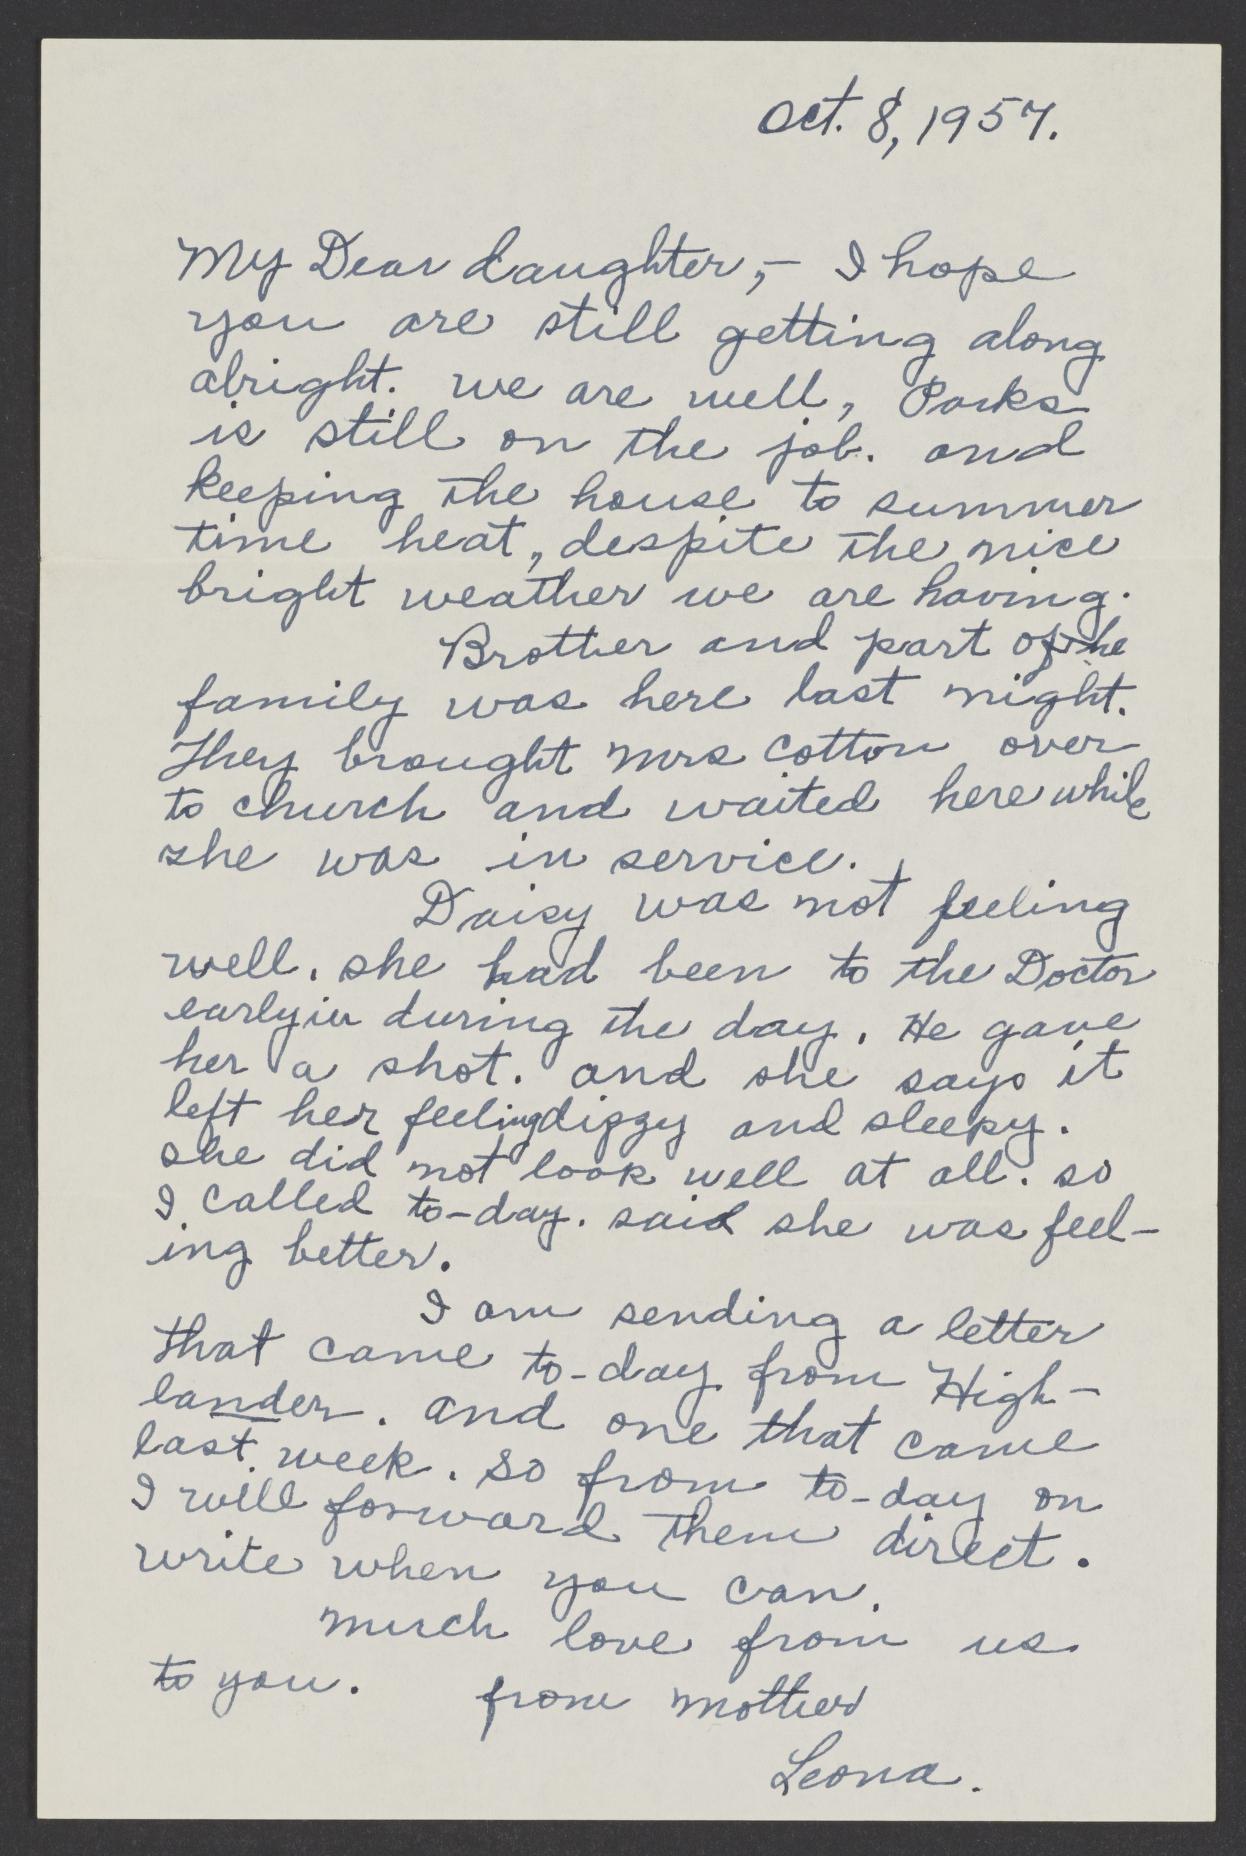 Oct. 8, 1957.
My Dear daughter,- I hope
you are still getting along
alright. we are well, Parks
is still on the job. and
keeping the house to summer
time heat, despite the nice
bright weather we are having.
Brother and part of the
family was here last night.
They brought Mrs Cotton over
to church and waited here while
she was in service.
Daisy was not feeling
well. she had been to the Doctor
early in during the day. He gave
her a shot. and she says it
left her feeling dizzy and sleepy.
she did not look well at all. so
I called to-day. said she was feel-
ing better.
I am sending a letter
that came to-day from High-
lander. and one that came
last week. so from to-day on
I will forward them direct.
write when you can.
Much love from us
to you. from Mother
Leona.